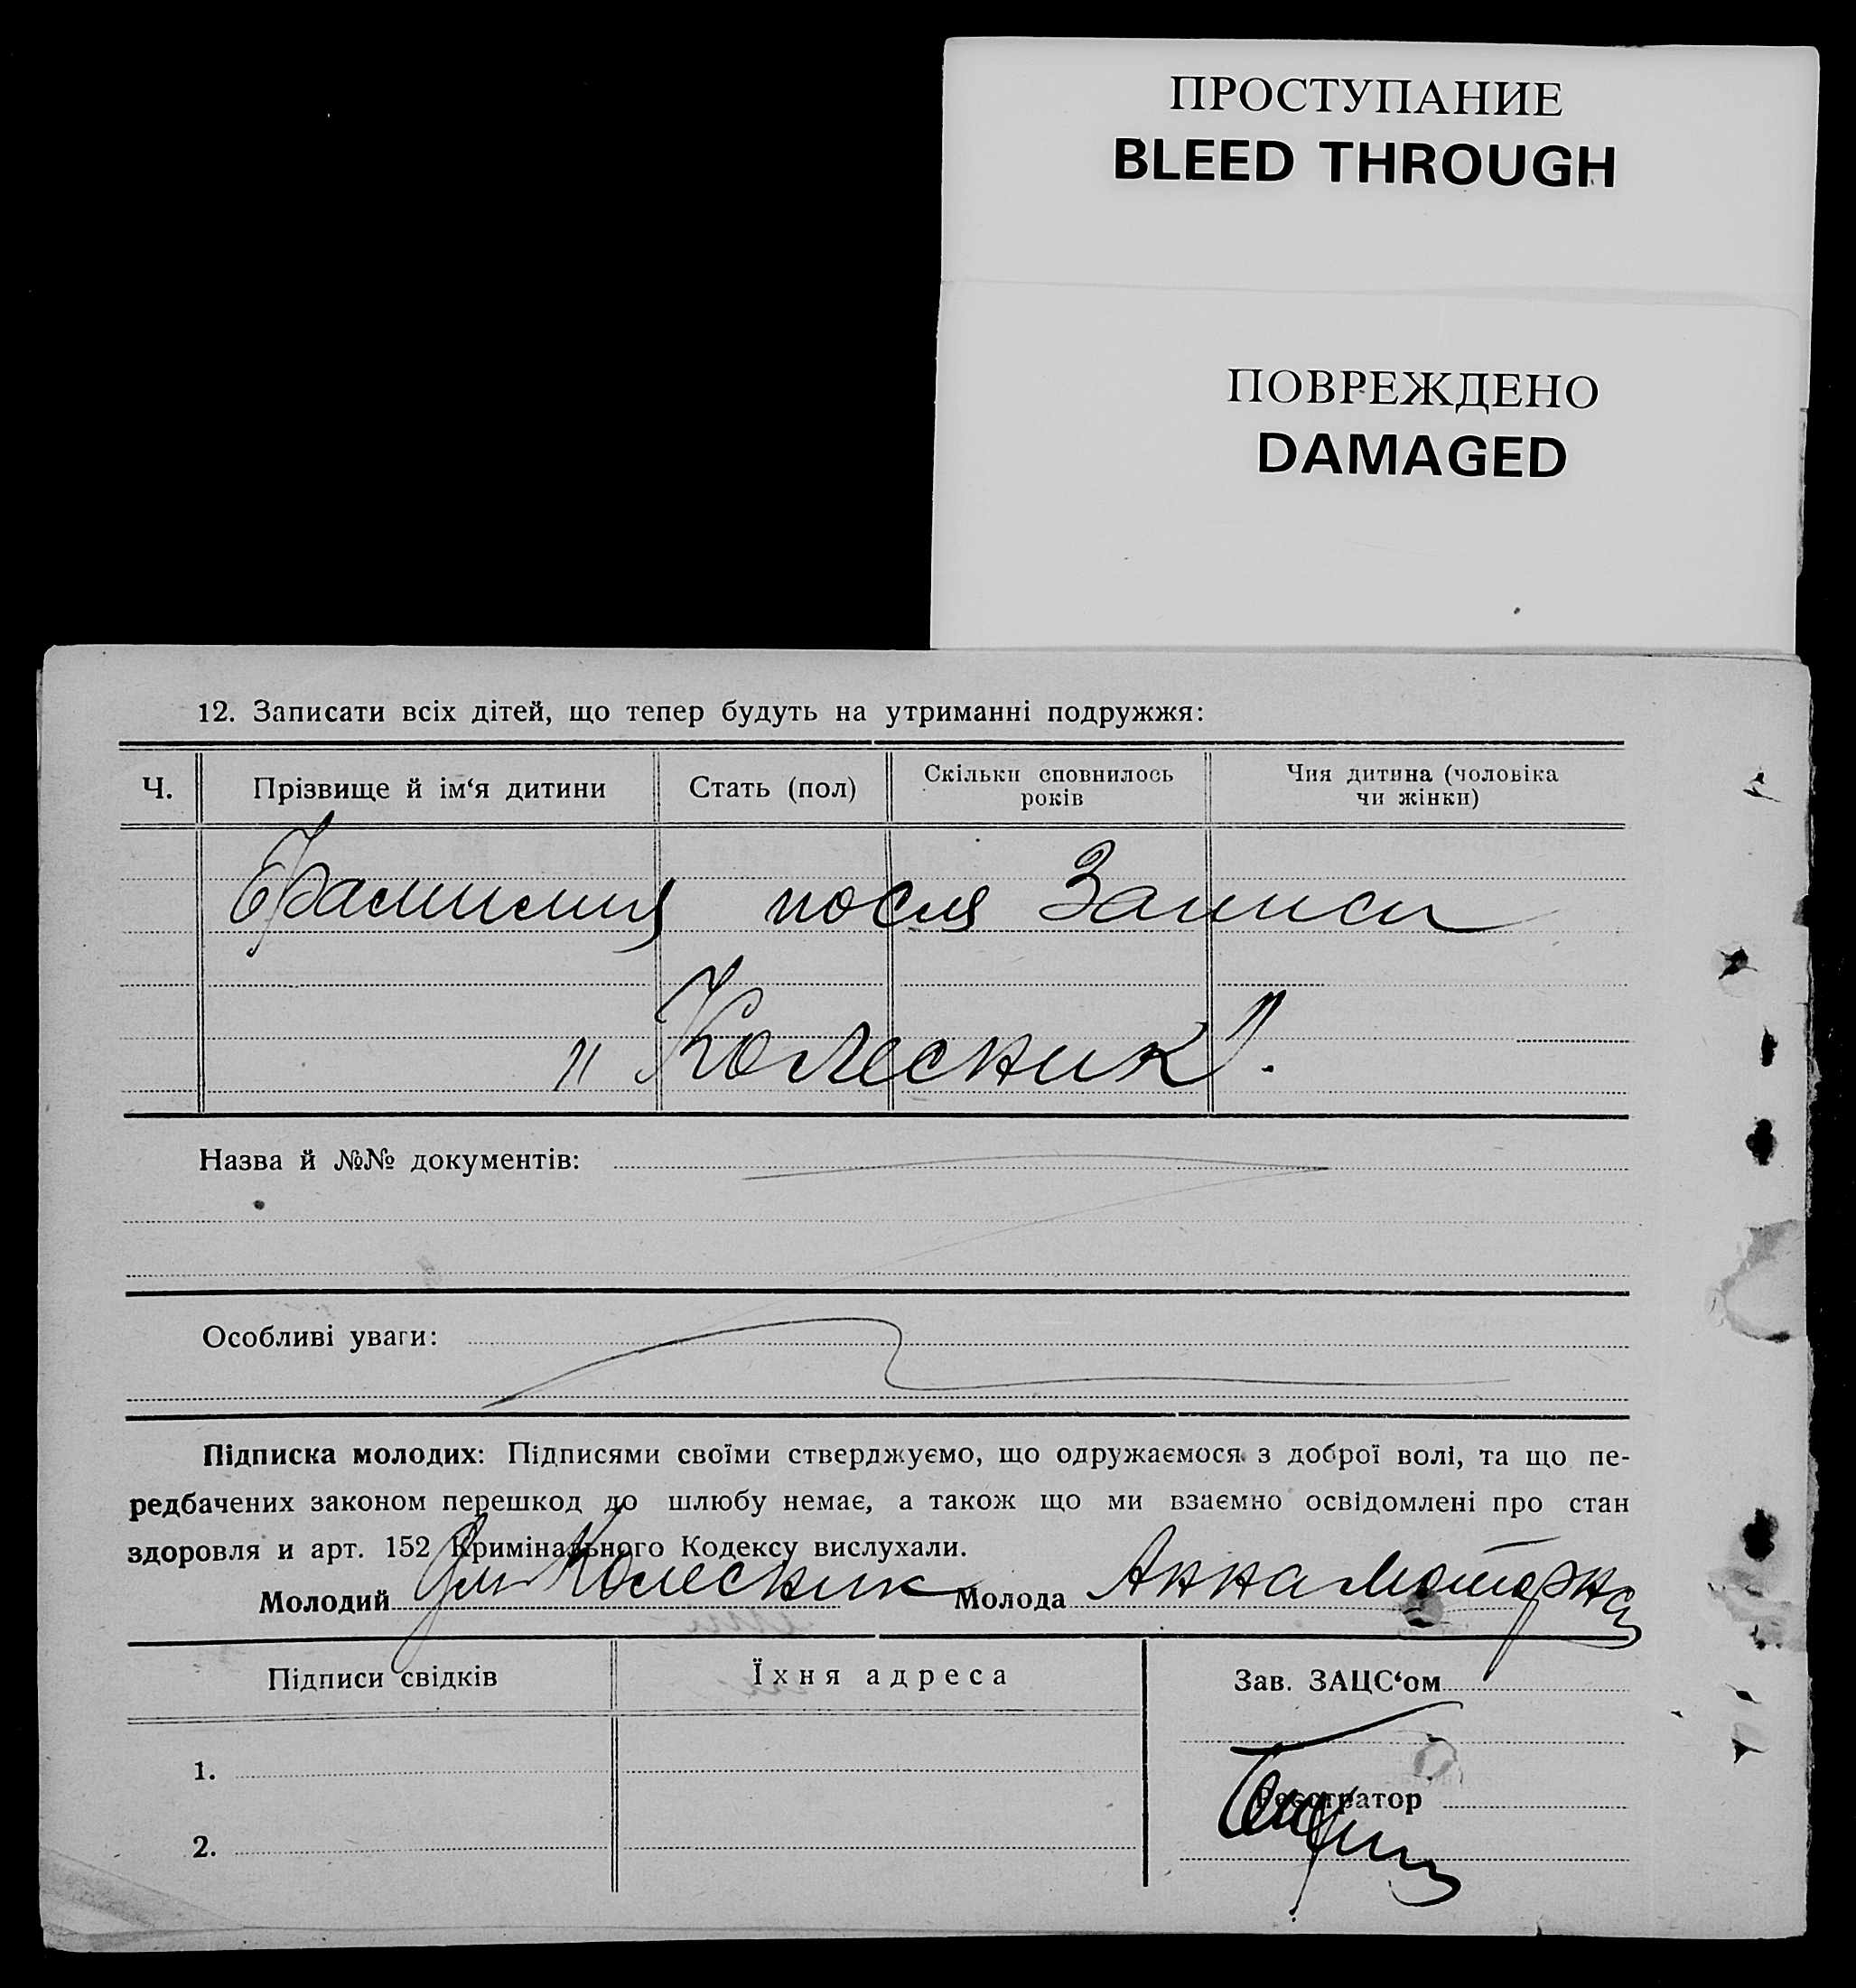 ПРОСТУПАНИЕ
BLEED THROUGH
ПОВРЕЖДЕНО
DAMAGED
12. Записати всіх дітей, що тепер будуть на утриманні подружжя:
Ч. Прізвище й ім‘я дитини Стать (пол) Скільки сповнилось років Чия дитина (чоловіка чи жінки)
Фамилия посля Записи
„Колесник".
Назва й №№ документів:
Особливі уваги:
Підписка молодих: Підписями своїми стверджуємо, що одружаємося з доброї волі, та що пе-
редбачених законом перешкод до шлюбу немає, а також що ми взаємно освідомлені про стан
здоровля и арт. 152 Кримінального Кодексу вислухали.
Молодий Колесник Молода Анна
Підписи свідків Їхня адреса Зав. ЗАЦС‘ом
1.
Реєстратор
2.